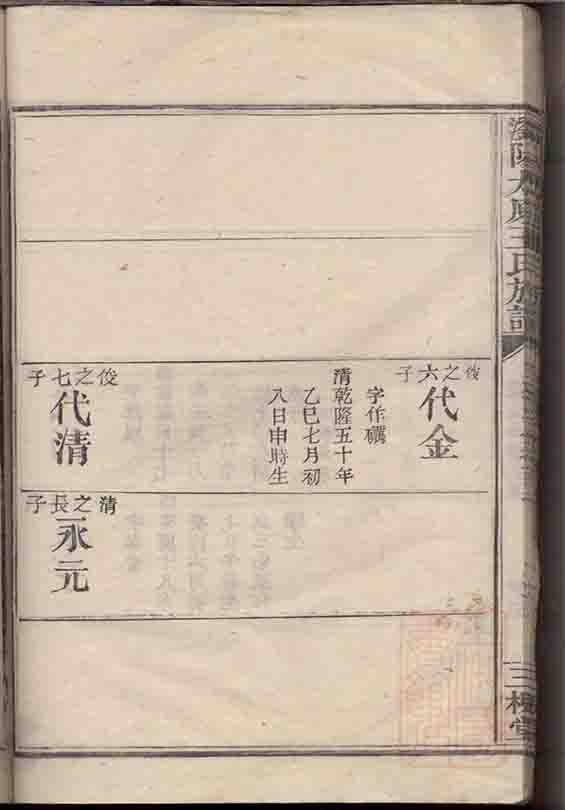 陽太原王氏族譜
三槐堂
俊之六子
代金
字作礪
清乾隆五十年
乙巳七月初
八日申時生
俊之七子
代清
清之長子
永元